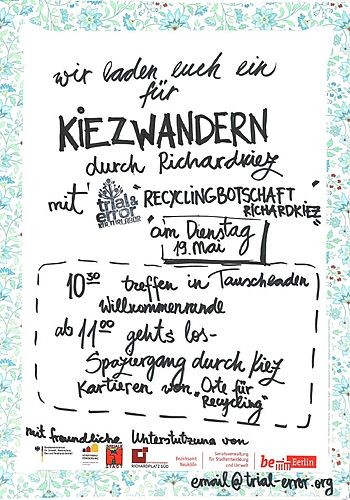 wir laden euch ein
für
KIEZWANDERN
durch Richardkiez
mit trial & error "RECYCLINGBOTSCHAFT
RICHARDKIEZ"
am Dienstag
19. Mai
10³⁰ treffen in Tauschladen
Willkommenrunde
ab 11⁰⁰ gehts los-
Spaziergang durch Kiez
Kartieren von "Orte für
Recycling"
mit freundliche Unterstutzung von
SOZIALE STADT
RICHARDPLATZ SÜD
Bezirksamt
Neukölln
Senatsverwaltung
für Stadtentwicklung
und Umwelt
be Berlin
email@trial-error.org